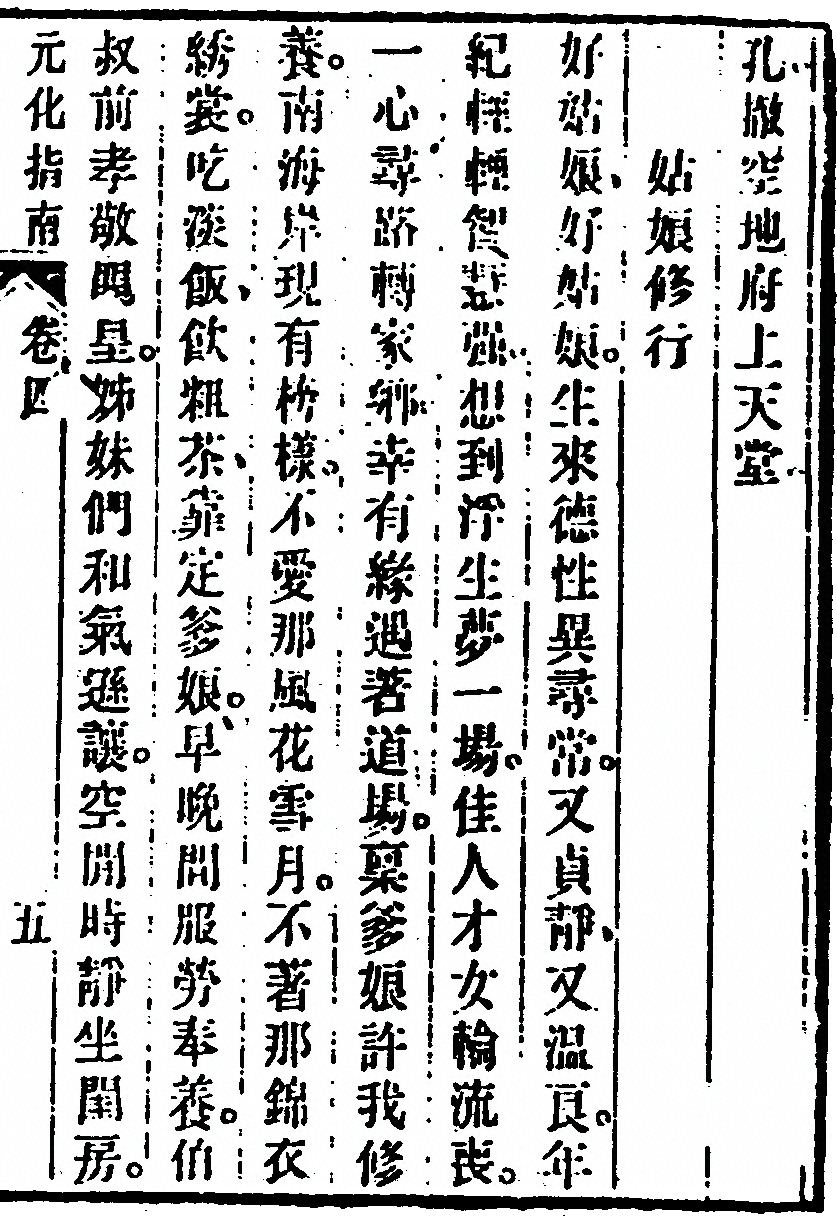 孔撤空地府上天堂
姑娘修行
好姑娘、好姑娘。生來德性異尋常。又貞靜、又溫良。年
紀輕輕智慧強。想到浮生夢一場。佳人才女輪流喪。
一心尋路轉家鄉。幸有緣遇著道場。稟爹娘許我修
養。南海岸現有榜樣。不愛那風花雪月。不著那錦衣
綉裳。吃淡飯、飲粗茶、靠定爹娘。早晚間服勞奉養。伯
叔前孝敬罔皇。姊妹們和氣遜讓。空閒時靜坐閨房。
元化指南 卷四 五